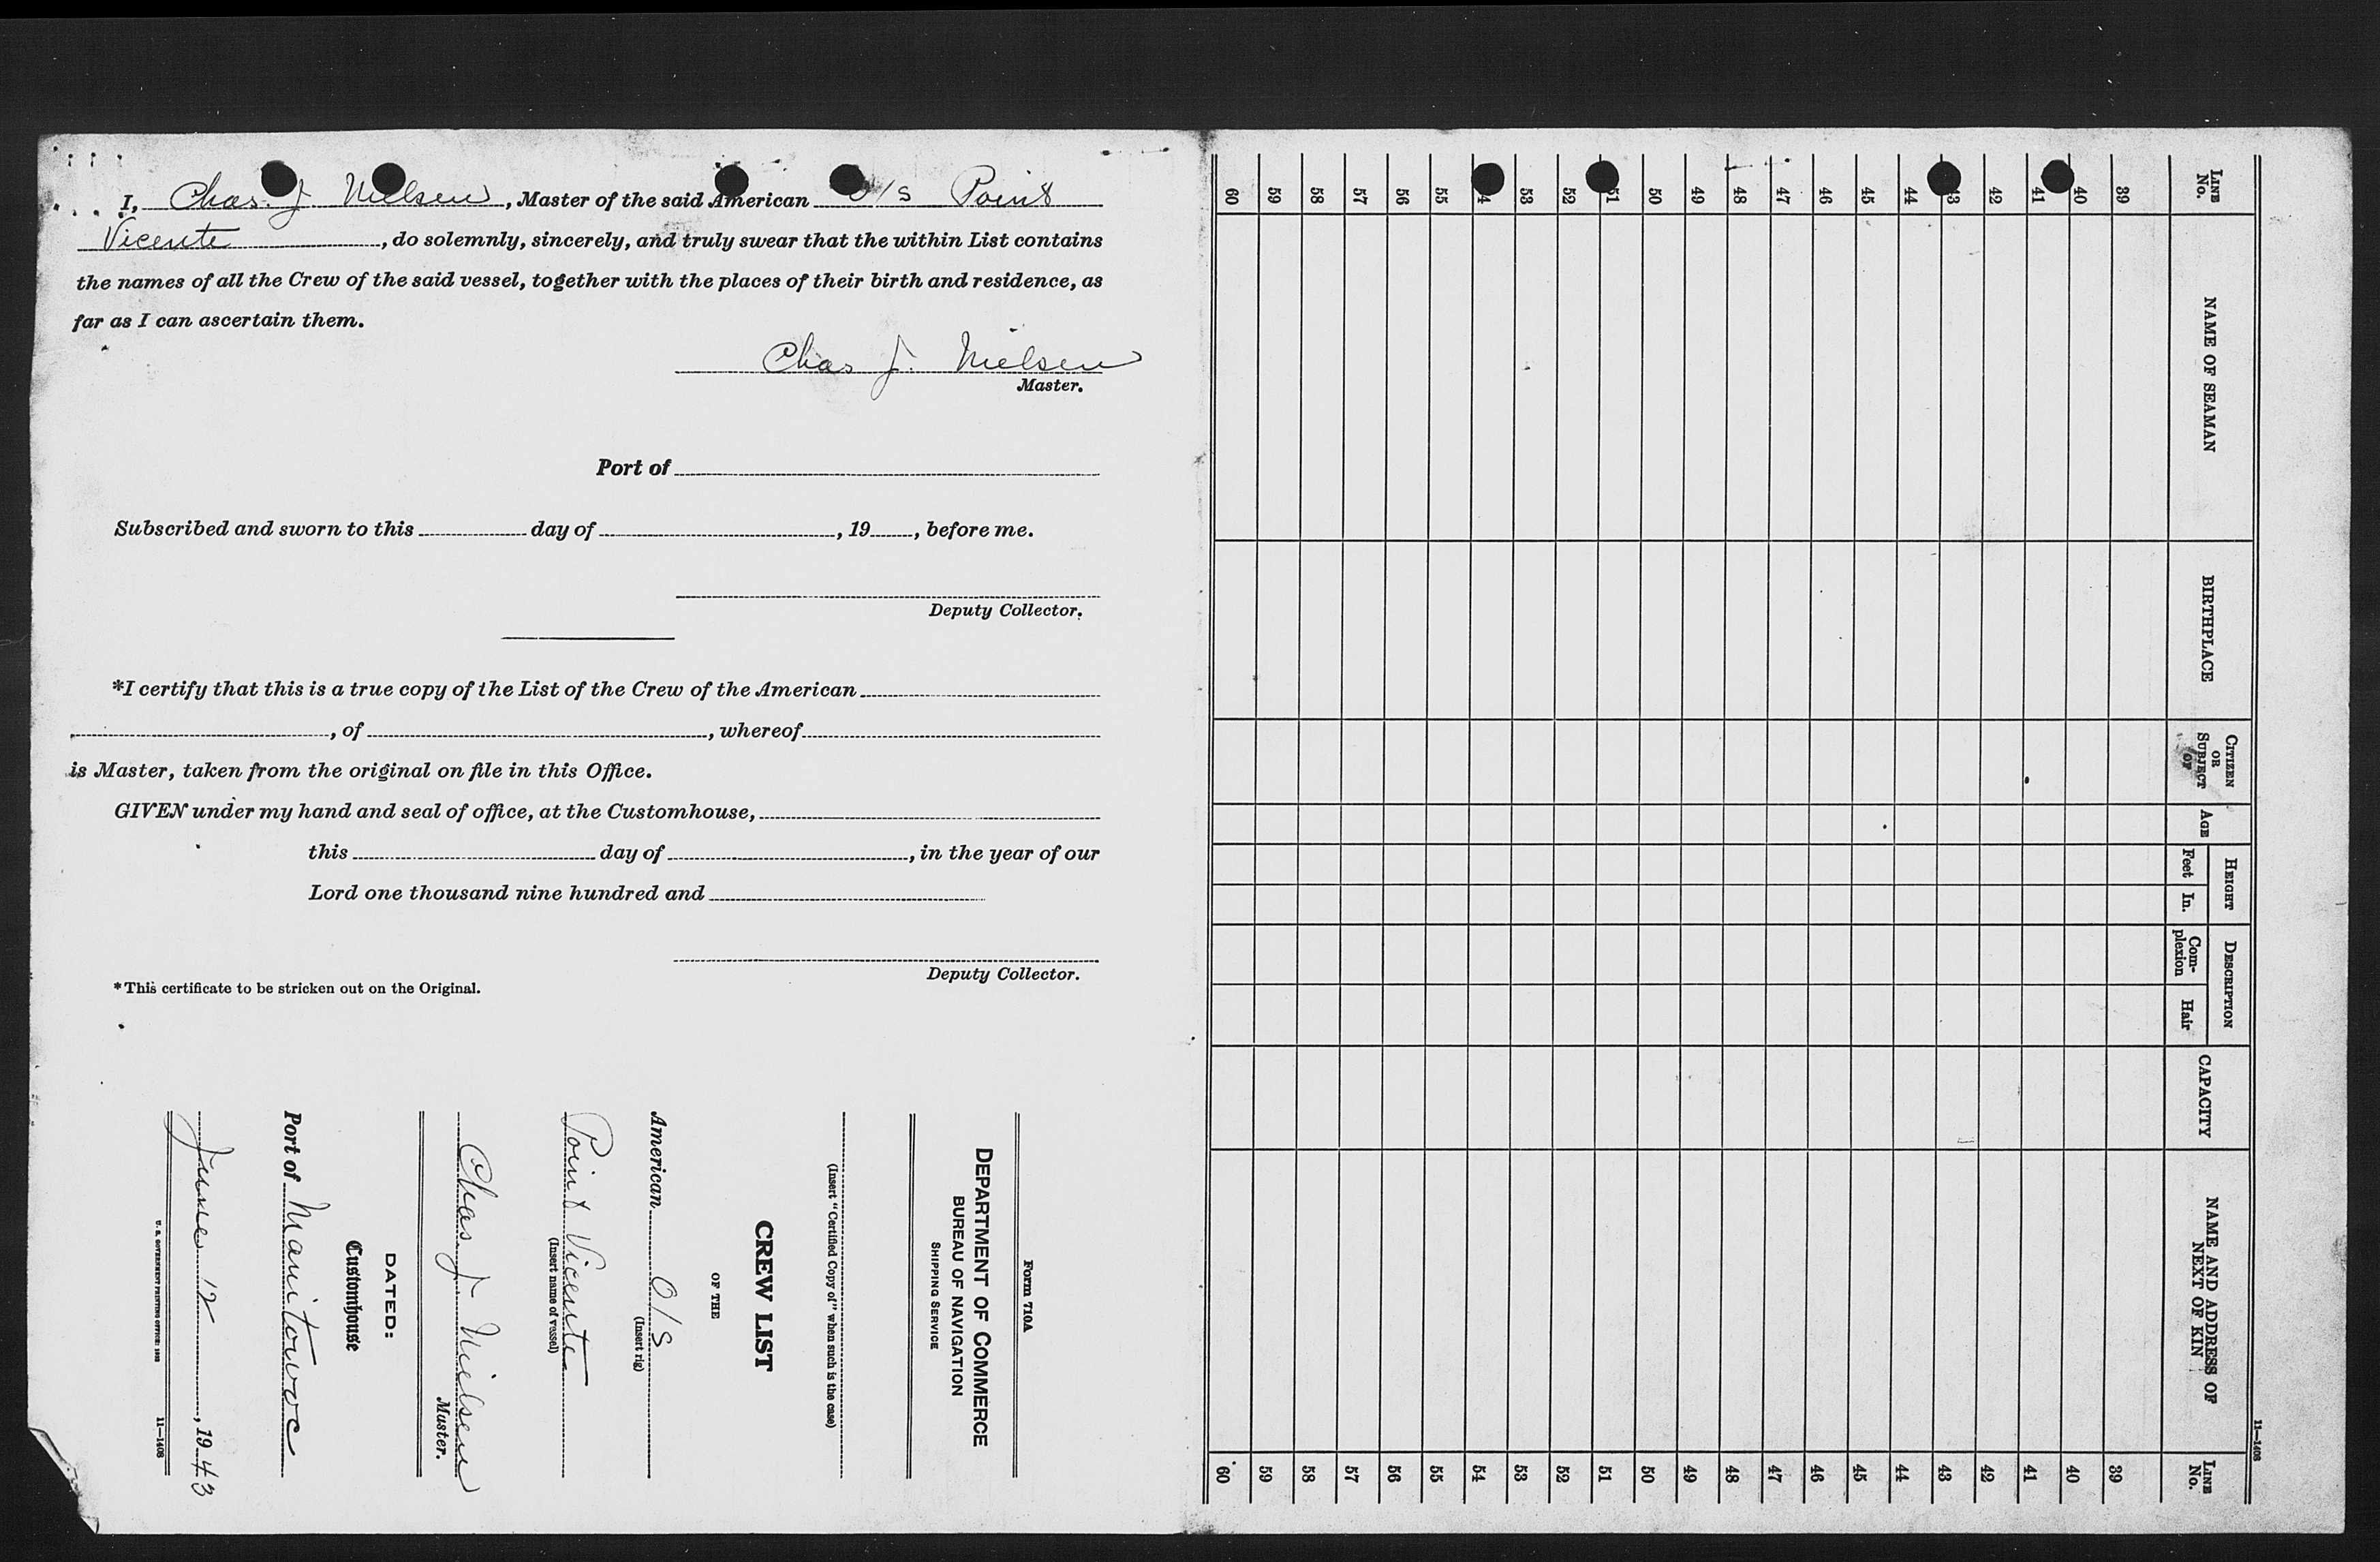 I, Chas. J Nielsen, Master of the said American O/S Point
Vicente, do solemnly, sincerely, and truly swear that the within List contains
the names of all the Crew of the said vessel, together with the places of their birth and residence, as
far as I can ascertain them.
Chas J. Nielsen
Master.
Port of
Subscribed and sworn to this day of , 19 , before me.
Deputy Collector.
*I certify that this is a true copy of the List of the Crew of the American
, of , whereof
is Master, taken from the original on file in this Office.
GIVEN under my hand and seal of office, at the Customhouse,
this day of , in the year of our
Lord one thousand nine hundred and
Deputy Collector.
*This certificate to be stricken out on the Original.
Form 710A
DEPARTMENT OF COMMERCE
BUREAU OF NAVIGATION
SHIPPING SERVICE
(Insert "Certified Copy of" when such is the case)
CREW LIST
OF THE
American O/S
(Insert rig)
Point Vicente
(Insert name of vessel)
Chas J. Nielsen
Master.
DATED:
Customhouse
Port of Manitowoc
June 12, 1943
U. S. GOVERNMENT PRINTING OFFICE: 11—1408
11—1408
LINE No.
NAME OF SEAMAN
BIRTHPLACE
CITIZEN OR SUBJECT OF
AGE
HEIGHT
Feet In.
DESCRIPTION
Complexion Hair
CAPACITY
NAME AND ADDRESS OF NEXT OF KIN
LINE No.
39 39
40 40
41 41
42 42
43 43
44 44
45 45
46 46
47 47
48 48
49 49
50 50
51 51
52 52
53 53
54 54
55 55
56 56
57 57
58 58
59 59
60 60